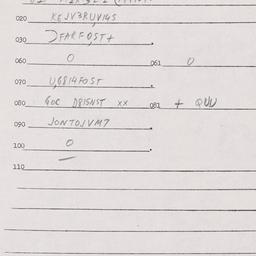 020 KEJV3RUVI4S
030 JFARFOST+
060 0 061 0
070 U6814FOST
080 GOC D815NST XX 081 + QUU
090 JONTOJVM7
100 0
110